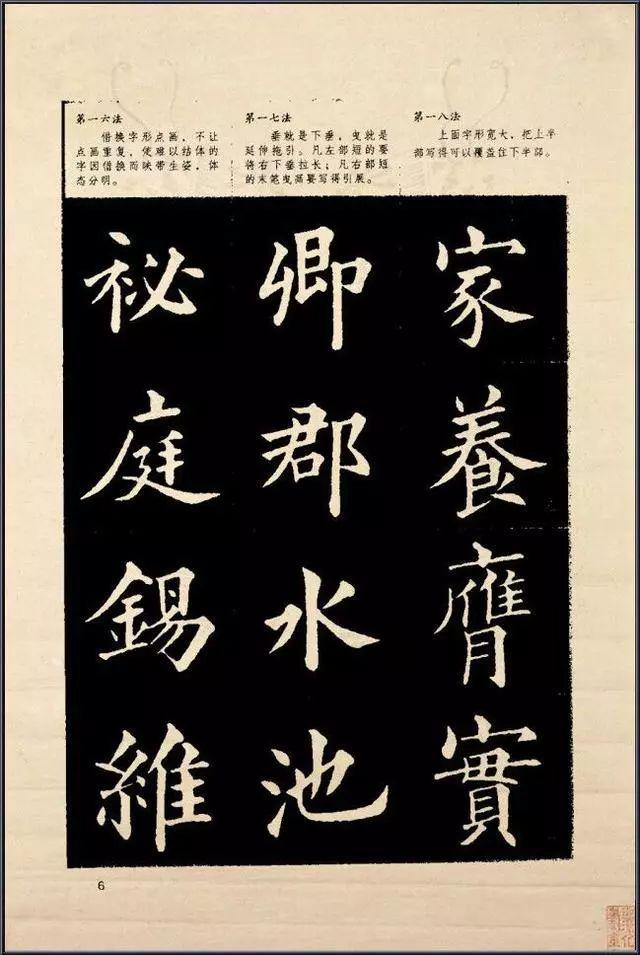 第一六法
借换字形点画，不让
点画重复，使难以结体的
字因借换而映带生姿，体
态分明。
祕庭錫維
第一七法
垂就是下垂，曳就是
延伸拖引。凡左部短的要
将右下垂拉长；凡右部短
的末笔曳画要写得引展。
卿郡水池
第一八法
上面字形宽大，把上半
部写得可以覆盖住下半部。
家養膺實
6